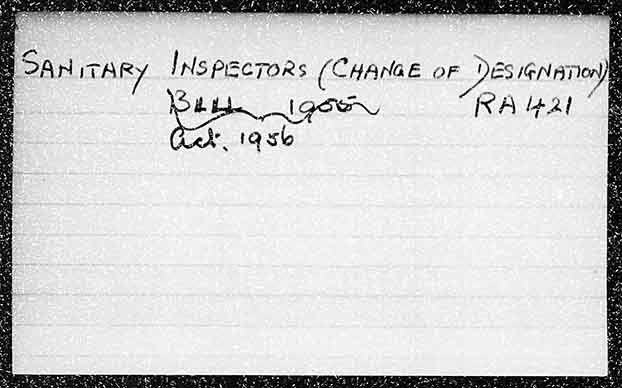 SANITARY INSPECTORS (CHANGE OF DESIGNATION)
BILL 1955 RA 421
Act. 1956